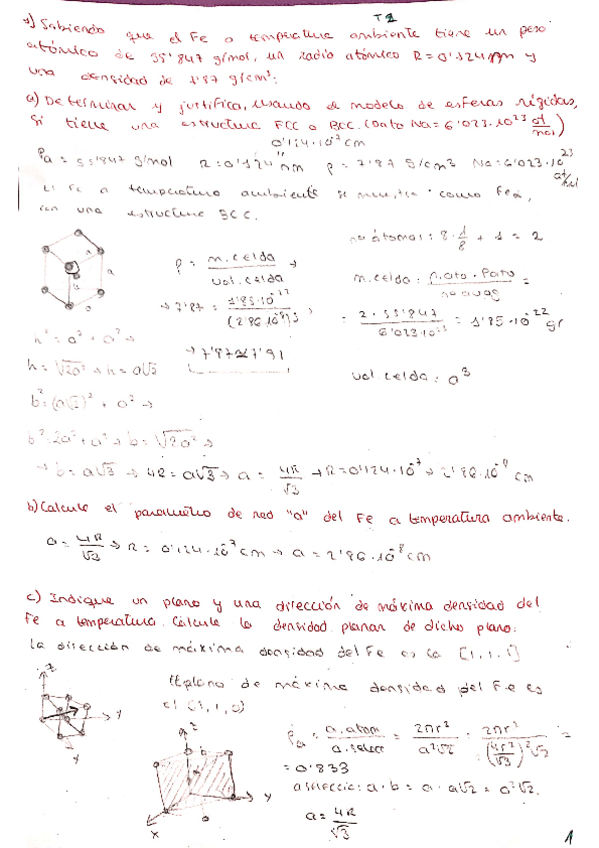 T2
1) Sabiendo que el Fe a temperatura ambiente tiene un peso
atómico de 55'847 g/mol, un radio atómico R=0'124 nm y
una densidad de 7'87 g/cm³:
a) Determinar y justifica, usando el modelo de esferas rígidas,
si tiene una estructura FCC o BCC. (Dato Na=6'023·10²³ at/mol)
0'124·10⁻⁷ cm
Pa = 55'847 g/mol R=0'124 nm ρ = 7'87 g/cm³ Na=6'023·10²³ at/mol
El Fe a temperatura ambiente se muestra como Feα,
con una estructura BCC.
no átomos: 8·1/8 + 1 = 2
ρ = m.celda / vol.celda →
m.celda: n.ato·Pato / no avog =
→ 7'87 = 1'85·10⁻²² / (2'86·10⁻⁸)³
= 2·55'847 / 6'023·10²³ = 1'85·10⁻²² gr
→ 7'87≈7'91
vol celda: a³
h² = a² + a² →
h = √2a² → h = a√2
b² = (a√2)² + a² →
b² = 2a² + a² → b = √3a² →
→ b = a√3 → 4R = a√3 → a = 4R/√3 → R=0'124·10⁻⁷ → 2'86·10⁻⁸ cm
b) Calcule el parámetro de red "a" del Fe a temperatura ambiente.
a = 4R/√3 → R = 0'124·10⁻⁷ cm → a = 2'86·10⁻⁸ cm
c) Indique un plano y una dirección de máxima densidad del
Fe a temperatura. Calcule la densidad planar de dicho plano.
La dirección de máxima densidad del Fe es la [1,1,1]
El plano de máxima densidad del Fe es
el (1,1,0)
ρa = a.atom / a.selecc = 2πr² / a²√2 = 2πr² / (4r/√3)²√2 =
= 0'833
a selección: a·b = a·a√2 = a²√2.
a = 4R/√3
1